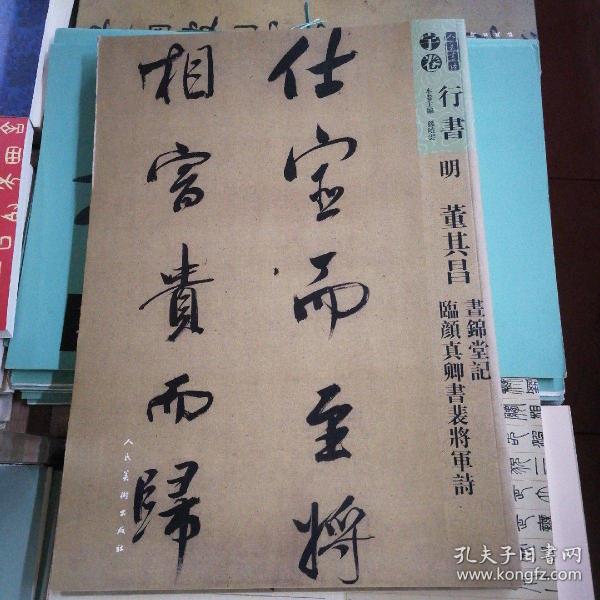 仕宦而至將
相富貴而歸
人民美術出版社
人美書譜
子卷
本卷主編
行書
明 董其昌
晝錦堂記
臨顏真卿書裴將軍詩
孔夫子旧书网
www.kongfz.com